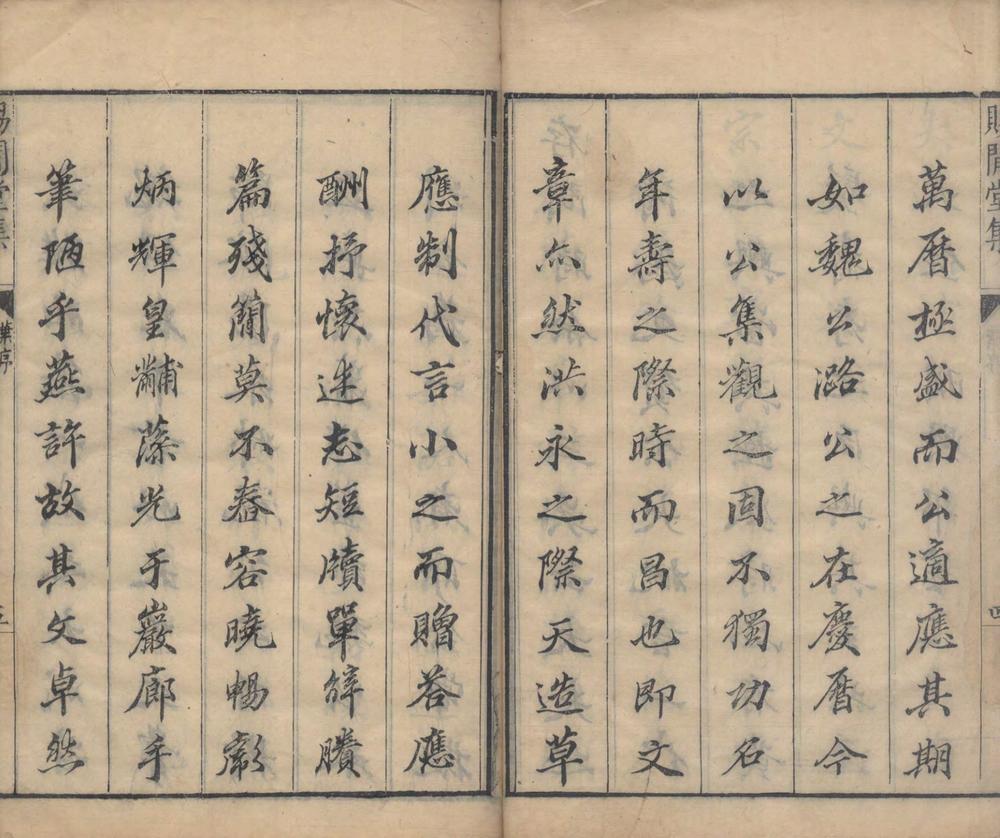 賜閒堂集
四
萬曆極盛而公適應其期
如魏公潞公之在慶曆今
以公集觀之固不獨功名
年壽之際時而昌也即文
章亦然洪永之際天造草
應制代言小之而贈荅應
酬抒懷述志短牘單辭賸
篇殘簡莫不舂容曉暢彪
炳輝皇黼藻光于巖廊手
筆陋乎燕許故其文卓然
賜閒堂集
葉序
五